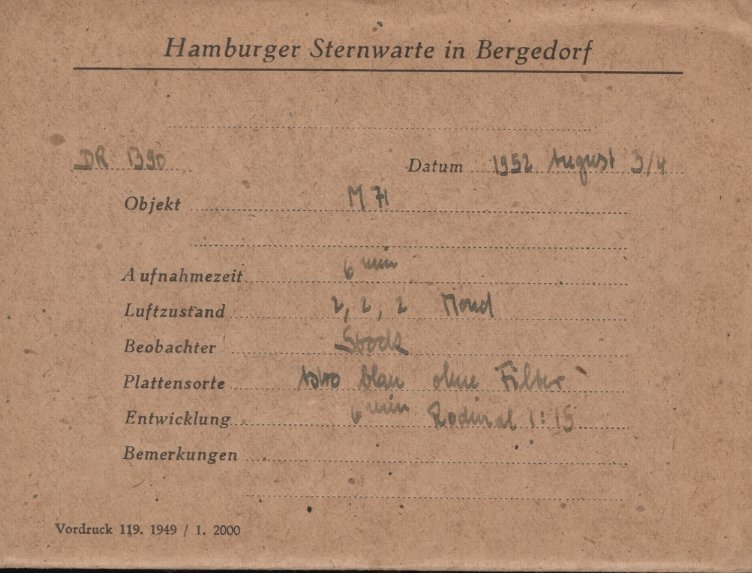 Hamburger Sternwarte in Bergedorf
DR 1390 Datum 1952 August 3/4
Objekt M 71
Aufnahmezeit 6 min
Luftzustand 2, 2, 2 Mond
Beobachter Stock
Plattensorte Astro blau ohne Filter
Entwicklung 6 min Rodinal 1:15
Bemerkungen
Vordruck 119. 1949 / 1. 2000